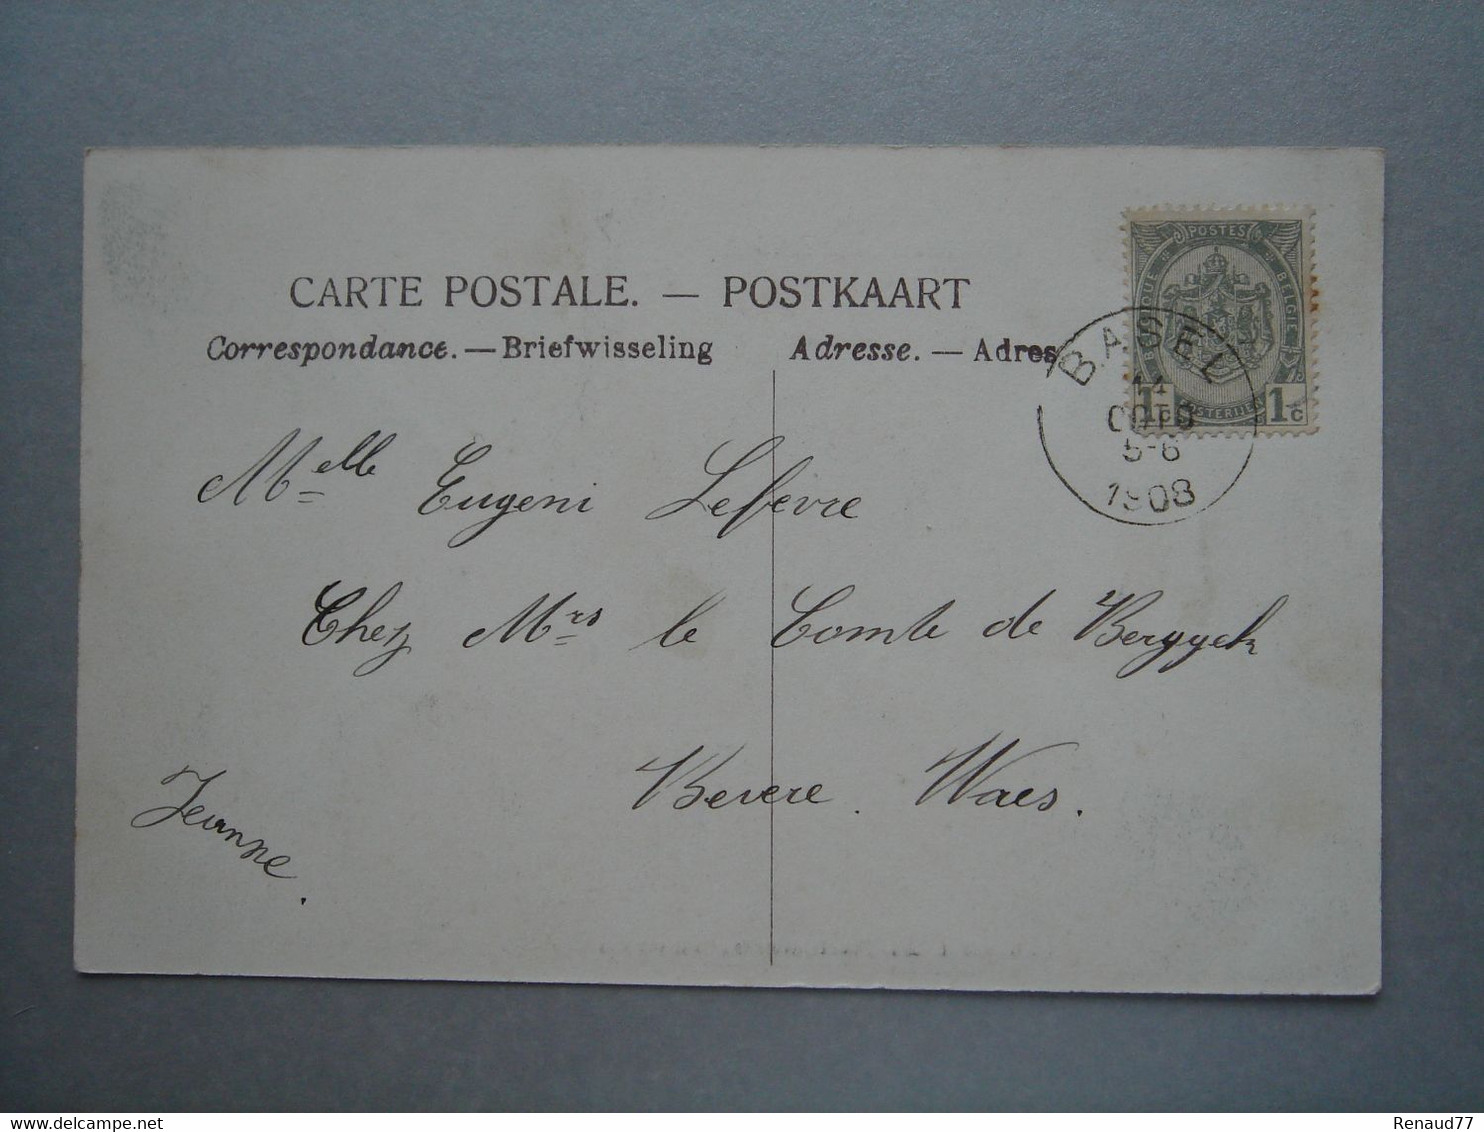 CARTE POSTALE. — POSTKAART
Correspondance. — Briefwisseling
Adresse. — Adres
POSTES
BELGIQUE
BELGIE
POSTERIJEN
1c 1c
BASEL
14
OCTO
5-6
1908
Melle Eugeni Lefevre
Chez Mrs le Comte de Bergyck
Bevere. Waes.
Jeanne.
www.delcampe.net
Renaud77